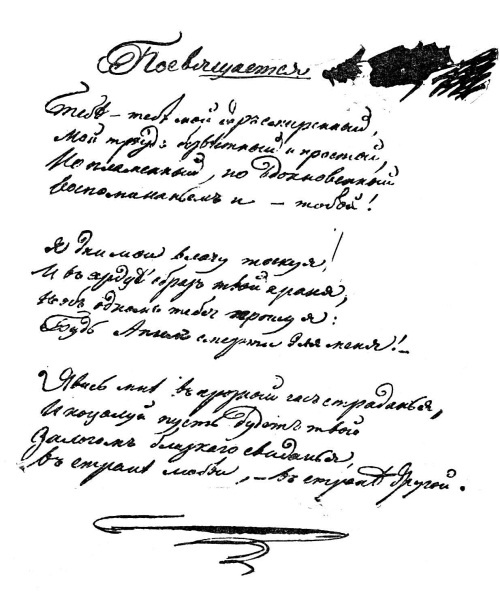 Посвящается
Тебѣ – тебѣ мой даръ смиренный,
Мой трудъ безвѣстный и простой,
Но пламенный, но вдохновенный
Воспоминаньемъ и – тобой!
Я дни мои влачу тоскуя,
И въ сердцѣ образъ твой храня,
Но объ одномъ тебя прошу я:
Будь Ангелъ смерти для меня! –
Явись мнѣ въ грозный часъ страданья,
И поцелуй пусть будетъ твой
Залогомъ близкаго свиданья,
Въ странѣ любви, – въ странѣ другой.